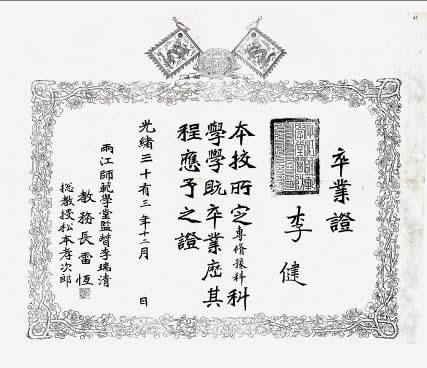 卒業證
李健
本校所定專脩豫科科
學學既卒業歷其
程應予之證
光緒三十有三年十二月 日
兩江師範學堂監督李瑞清
教務長雷恆
総教授松本孝次郎